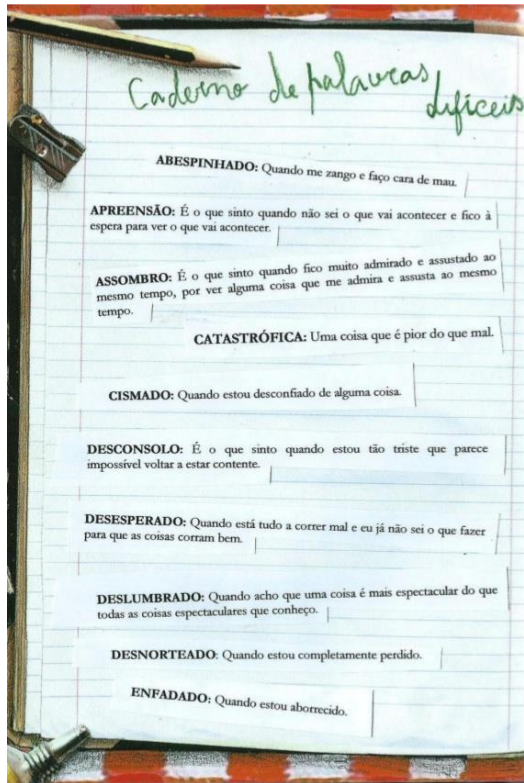 Caderno de palavras
difíceis
ABESPINHADO: Quando me zango e faço cara de mau.
APREENSÃO: É o que sinto quando não sei o que vai acontecer e fico à
espera para ver o que vai acontecer.
ASSOMBRO: É o que sinto quando fico muito admirado e assustado ao
mesmo tempo, por ver alguma coisa que me admira e assusta ao mesmo
tempo.
CATASTRÓFICA: Uma coisa que é pior do que mal.
CISMADO: Quando estou desconfiado de alguma coisa.
DESCONSOLO: É o que sinto quando estou tão triste que parece
impossível voltar a estar contente.
DESESPERADO: Quando está tudo a correr mal e eu já não sei o que fazer
para que as coisas corram bem.
DESLUMBRADO: Quando acho que uma coisa é mais espectacular do que
todas as coisas espectaculares que conheço.
DESNORTEADO: Quando estou completamente perdido.
ENFADADO: Quando estou aborrecido.